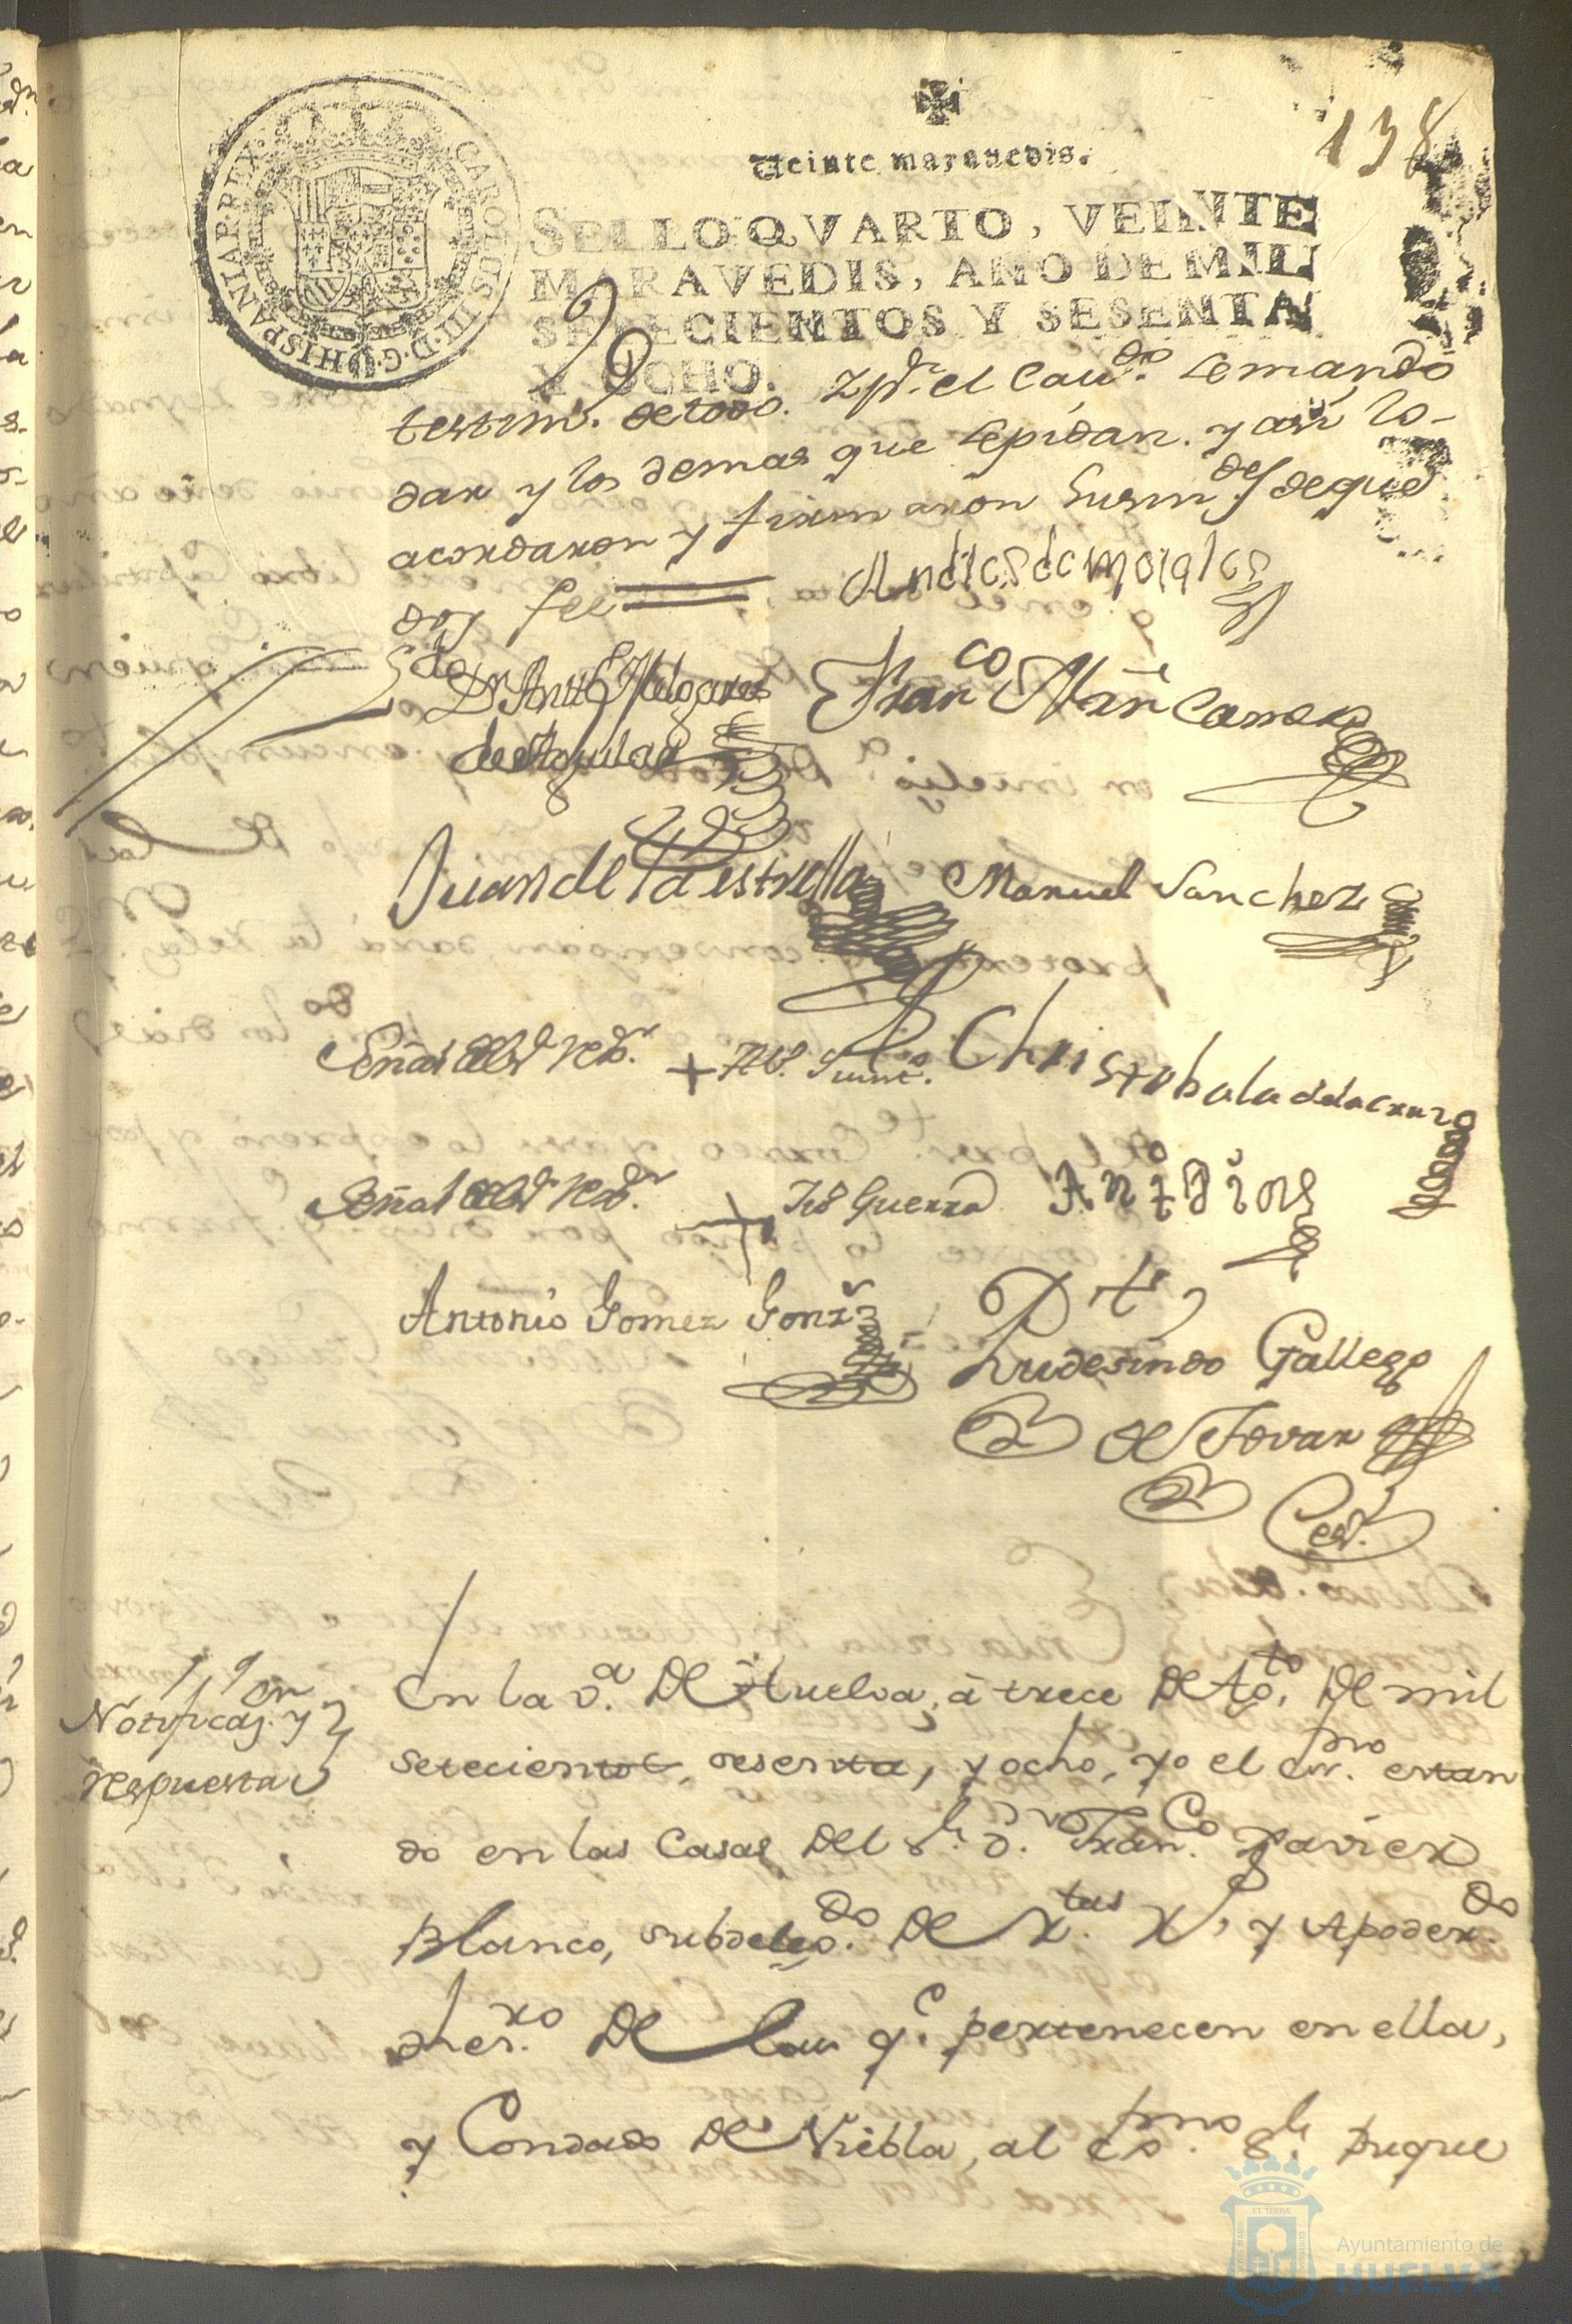 138
CAROLUS III. D. G. HISPANIAR. REX.
Veinte maravedis.
SELLO QVARTO, VEINTE
MARAVEDIS, AÑO DE MIL
SETECIENTOS Y SESENTA
Y OCHO.
testimo. de todo. Y pr. el Cavdo. se mando
dar y los demas que se pidan. y asi lo
acordaron y firmaron Sus mdes. de que
doy fee
Andres de morales
Dr. Antto
de Aguilar
Franco Mārn
Juan de la estrella
Manuel Sanchez
Señal del Sr. Rexdor. +
Christobal de la cruz
Señal del Sr. Rexdor. + Guerra
Antonio Gomez Gonzz
Rudesindo Gallego
de Tovar
Notificazon. y
respuesta
En la va. De Huelva, á trece De Agto. De mil
setecientos, sesenta, y ocho, yo el Sno. estan
do en las Casas Del Sr. Dn. Franco. Xavier
Blanco, subdelegdo. De Rtas. Rs. y Apoderdo
thesro. De las qe. pertenecen en ella,
y Condado De Niebla, al Exmo. Sr. Duque
Ayuntamiento de
HUELVA